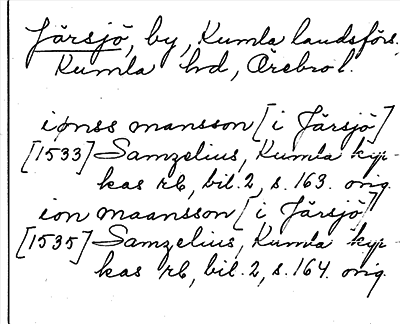 Järsjö, by, Kumla landsförs.
Kumla hd, Örebro l.
ionss mansson [i Järsjö]
[1533] Samzelius, Kumla kyr-
kas rb, bil. 2, s. 163. orig.
ion maansson [i Järsjö]
[1535] Samzelius, Kumla kyr-
kas rb, bil. 2, s. 164. orig.